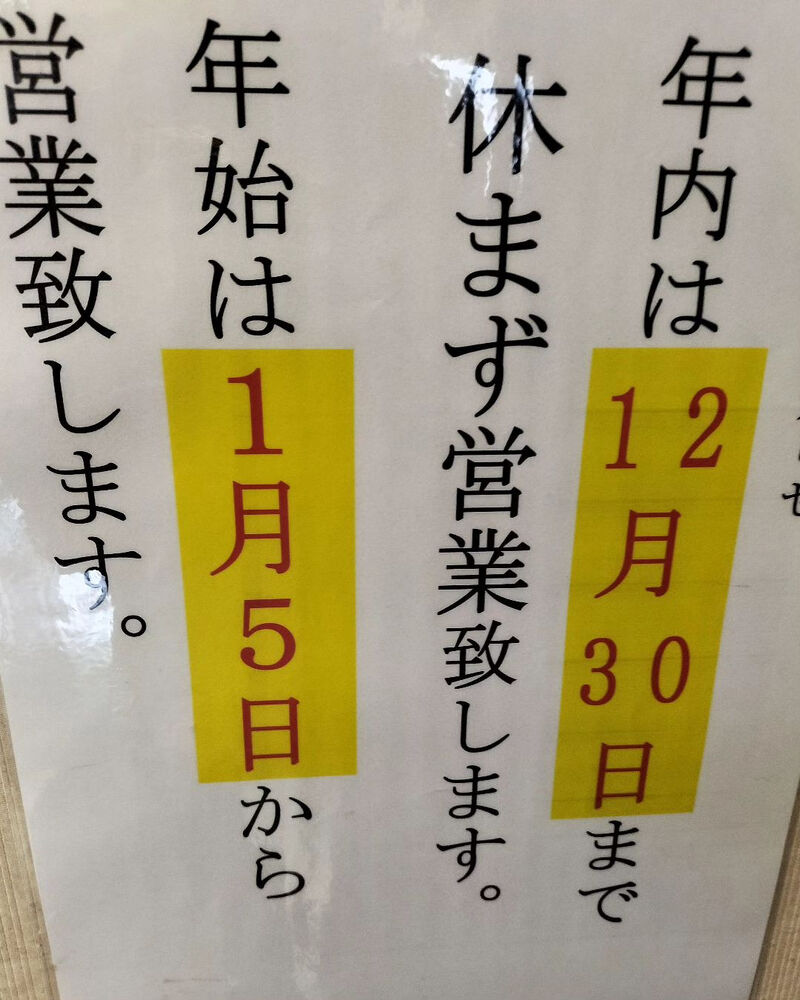 年内は12月30日まで
休まず営業致します。
年始は1月5日から
営業致します。